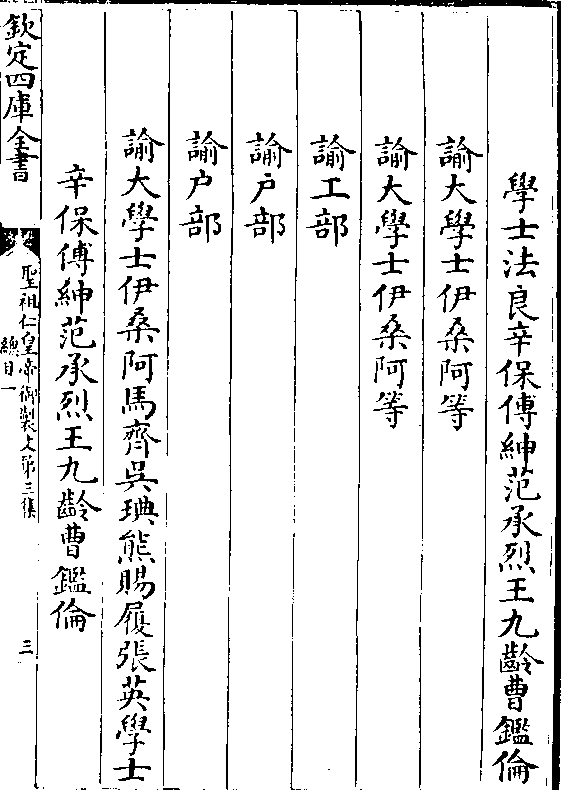 學士法良辛保傅紳范承烈王九齡曹鑑倫
諭大學士伊桑阿等
諭大學士伊桑阿等
諭工部
諭户部
諭户部
諭大學士伊桑阿馬齊吳琠熊賜履張英學士
辛保傅紳范承烈王九齡曹鑑倫
欽定四庫全書
聖祖仁皇帝御製文第三集
總目一
三